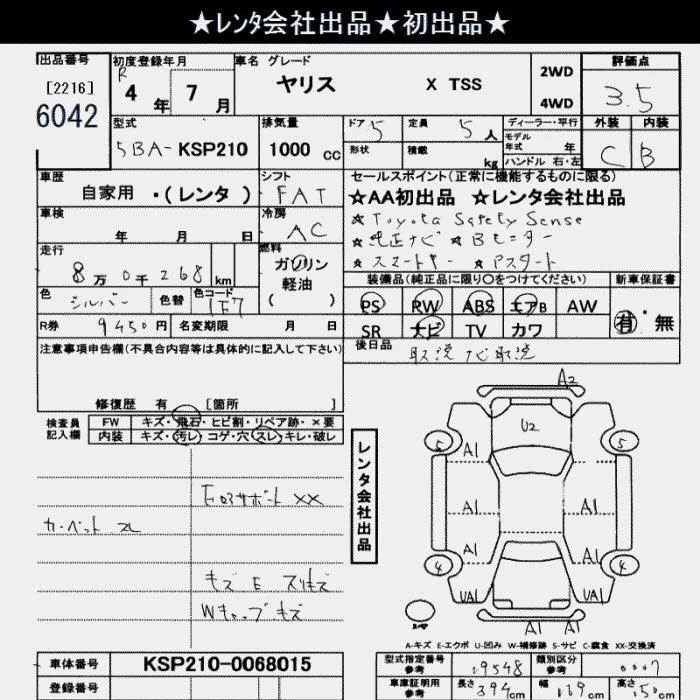 ★レンタ会社出品★初出品★
出品番号 初度登録年月 車名 グレード 評価点
[2216] R 4年 7月 ヤリス X TSS 2WD 3.5
6042 4WD
型式 排気量 ドア 5 定員 5人 ディーラー・平行 外装 内装
5BA-KSP210 1000cc 形状 積載 kg モデル年式 年 C B
ハンドル 右・左
車歴 シフト セールスポイント(正常に機能するものに限る)
自家用・(レンタ) FAT ☆AA初出品 ☆レンタ会社出品
車検 冷房 ☆Toyota Safety Sense
年 月 日 AC ☆純正ナビ ☆Bモニター
走行 燃料 ☆スマートキー ☆Pスタート
8万0千268km ガソリン
軽油
( )
装備品(純正品に限り○をつけてください) 新車保証書
色 シルバー 色替 色コード 1F7 PS RW ABS エアB AW 有・無
R券 9450円 名変期限 月 日 SR ナビ TV カワ
注意事項申告欄(不具合内容等は具体的に記入して下さい) 後日品 取説 ナビ取説
修復歴 有 [箇所
検査員記入欄 FW キズ・飛石・ヒビ割・リペア跡・×要
内装 キズ・汚レ・コゲ・穴・スレ・キレ・破レ
レンタ会社出品
A2
U2
5 A1 5
A1 A1
A1 A1
4 4
UA1 UA1
A1 A1
スペア
サポート XX
カーペット
キズ E スリキズ
Wキャップキズ
A-キズ E-エクボ U-凹み W-補修跡 S-サビ C-腐食 XX-交換済
車体番号 KSP210-0068015 型式指定番号 参考 19548 類別区分 参考 0007
登録番号 車庫証明用 参考 長さ 394cm 幅 169cm 高さ 150cm